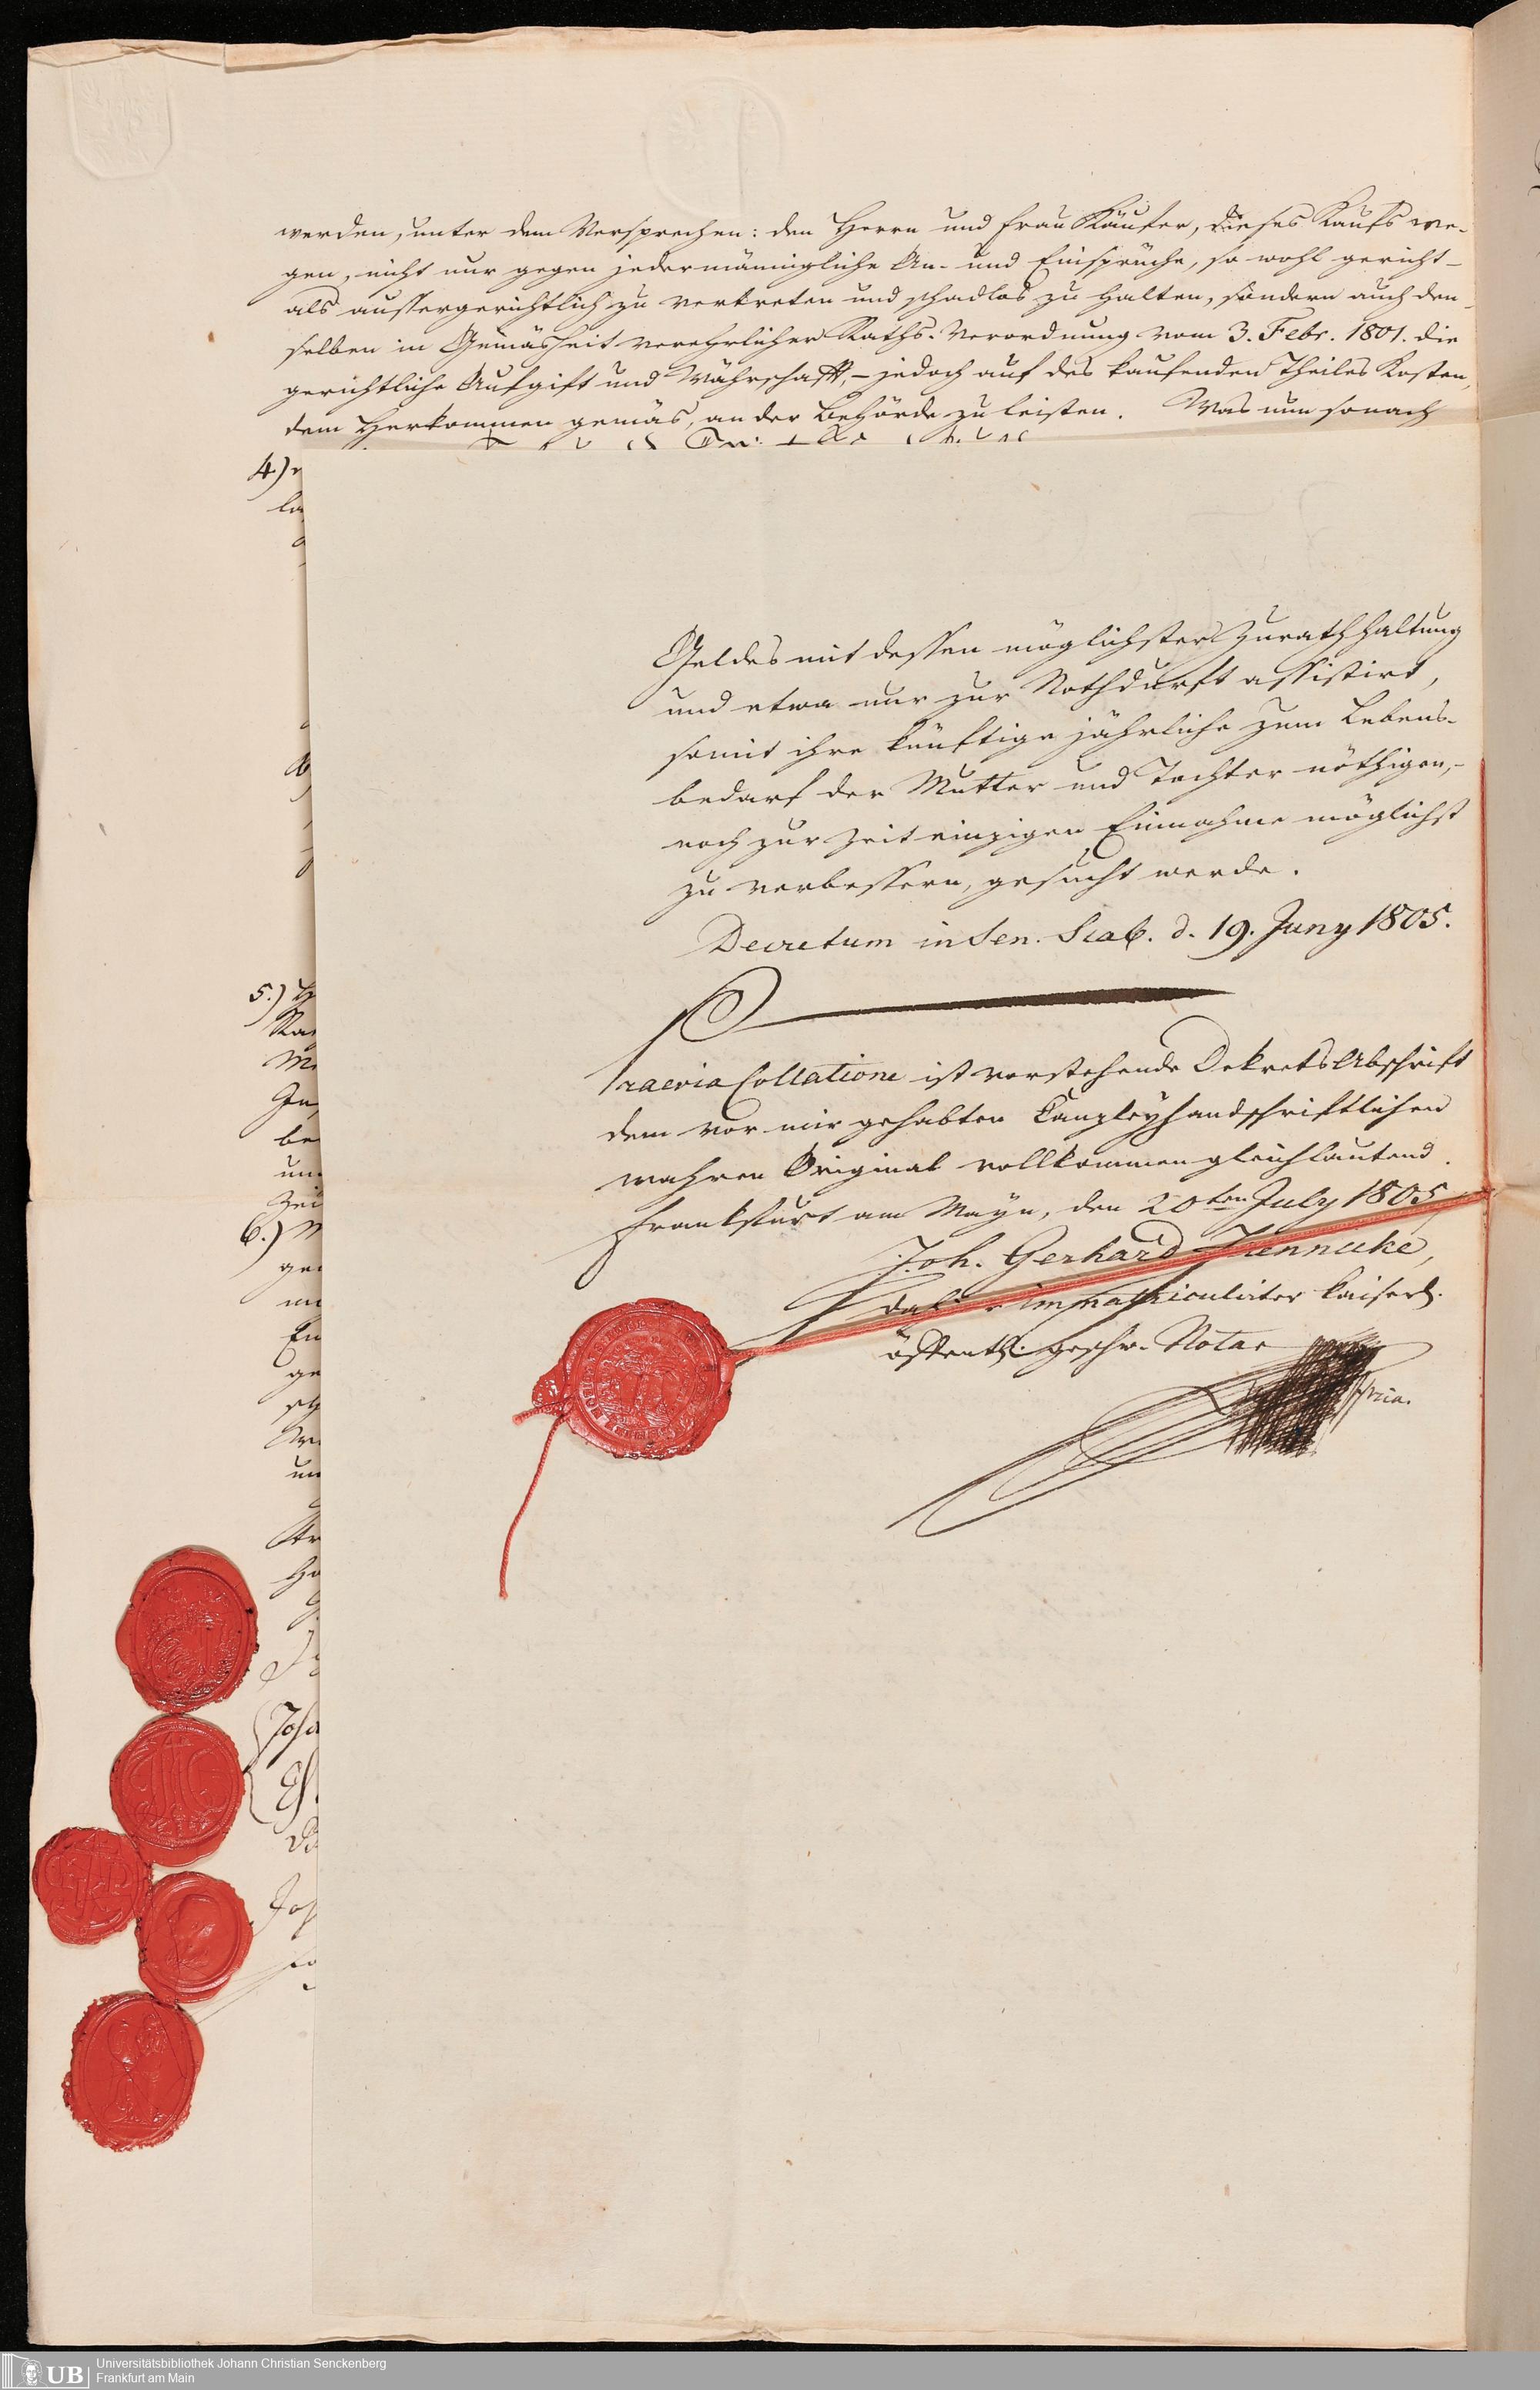 werden, unter dem Versprechen: den Herrn und Frau Käufer, dieses Kaufs we-
gen, nicht nur gegen jedermännigliche An- und Einsprüche, so wohl gericht-
als aussergerichtlich zu vertreten und schadlos zu halten, sondern auch den-
selben in Gemäsheit verehrlicher Raths-Verordnung vom 3. Febr. 1801. die
gerichtliche Aufgift und Währschafft, - jedoch auf des kaufenden Theiles Kosten,
dem Herkommen gemäs, an der Behörde zu leisten. Was nun sonach
4.)
Geldes mit dessen möglichster Zurathhaltung
und etwa nur zur Nothdurft assistirt,
somit ihre künftige jährliche zum Lebens-
bedarf der Mutter und Tochter nöthigen,-
noch zur Zeit einzigen Einnahme möglichst
zu verbessern, gesucht werde.
Decretum in Sen. Scab. d. 19. Juny 1805.
Praevia Collatione ist vorstehende Dekrets Abschrift
dem vor mir gehabten Canzleyhandschriftlichen
wahren Original vollkommen gleichlautend.
Frankfurt am Mayn, den 20ten July 1805
Joh. Gerhard
immatriculirter Kaiserl.
öffentl. geschw. Notar
5.)
be
um
Zei
6.)
ge
ge
Joha
Joh
UB
Universitätsbibliothek Johann Christian Senckenberg
Frankfurt am Main